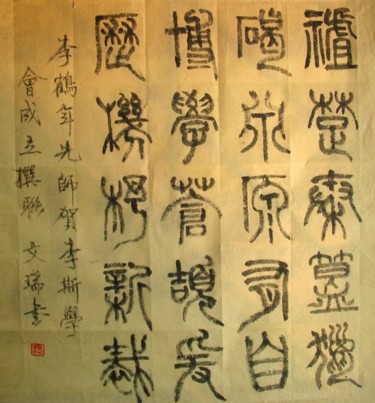 楚秦篆獵
碣原有自
博學蒼頡爰
歷機杼新裁
李鶴年先師賀李斯學
會成立撰聯 文瑞書